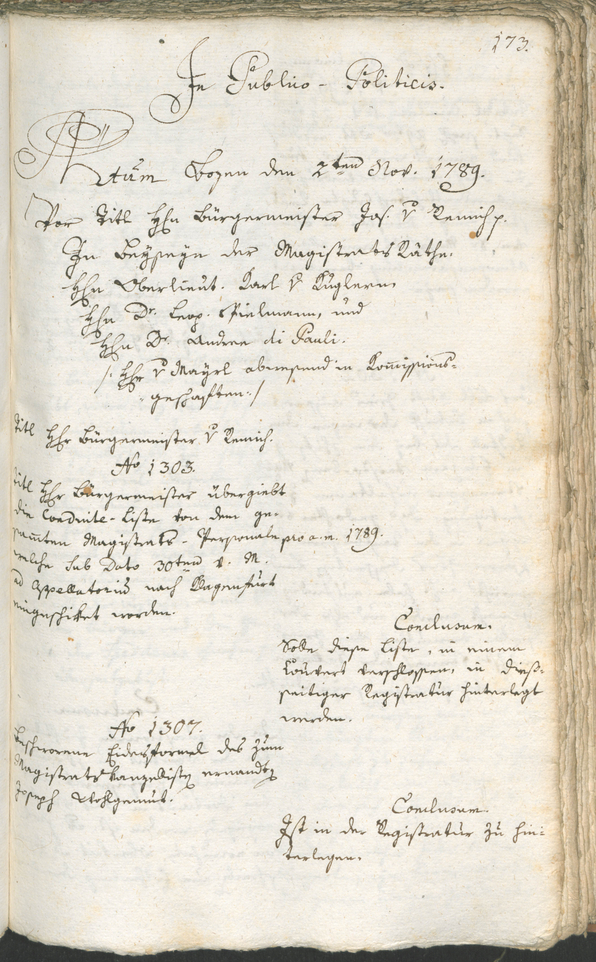 173.
In Publico-Politicis.
Actum Bozen den 2ten Nov. 1789.
Vor Titl Hhn Bürgermeister Jos. v Remich p.
In Beyseyn der Magistrats Räthe.
Hhn Oberlieut. Karl v Kuglern.
Hhn Dr. Leop. Pielmann, und
Hhn Dr. Andree di Pauli.
/: Hhr v Mayrl abwesend in Kom̄issions-
geschäften :/
Titl Hhr Bürgermeister v Remich.
No 1303.
Titl Hhr Bürgermeister übergiebt
die Conduite-Liste von dem ge-
sam̄ten Magistrats-Personale pro a.m. 1789.
welche sub Dato 30ten v. M.
ad Appellatorium nach Klagenfurt
eingeschiket worden.
Conclusum.
Solle diese Liste, in einem
Couvert verschlossen, in dieß-
seitiger Registratur hinterlegt
werden.
No 1307.
Beschworene Eidesformel des zum
Magistratskanzellisten ernandten
Joseph Wohlgemut.
Conclusum.
Ist in der Registratur zu hin-
terlegen.